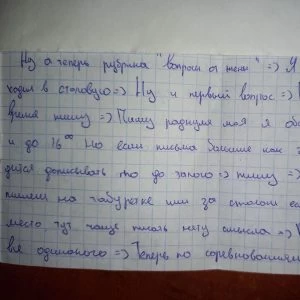 Ну а теперь рубрика "вопросы от жены" => Я
ходил в столовую => Ну и первый вопрос =>
время пишу => Пишу родную моя я
и до 16°° Но если письма большие как
дится дописывать то до самого => пишу =>
пишем на табуретке или за столом ес
место, тут чаще писать нету смысла =>
всё одинаково => Теперь по соревнованиям